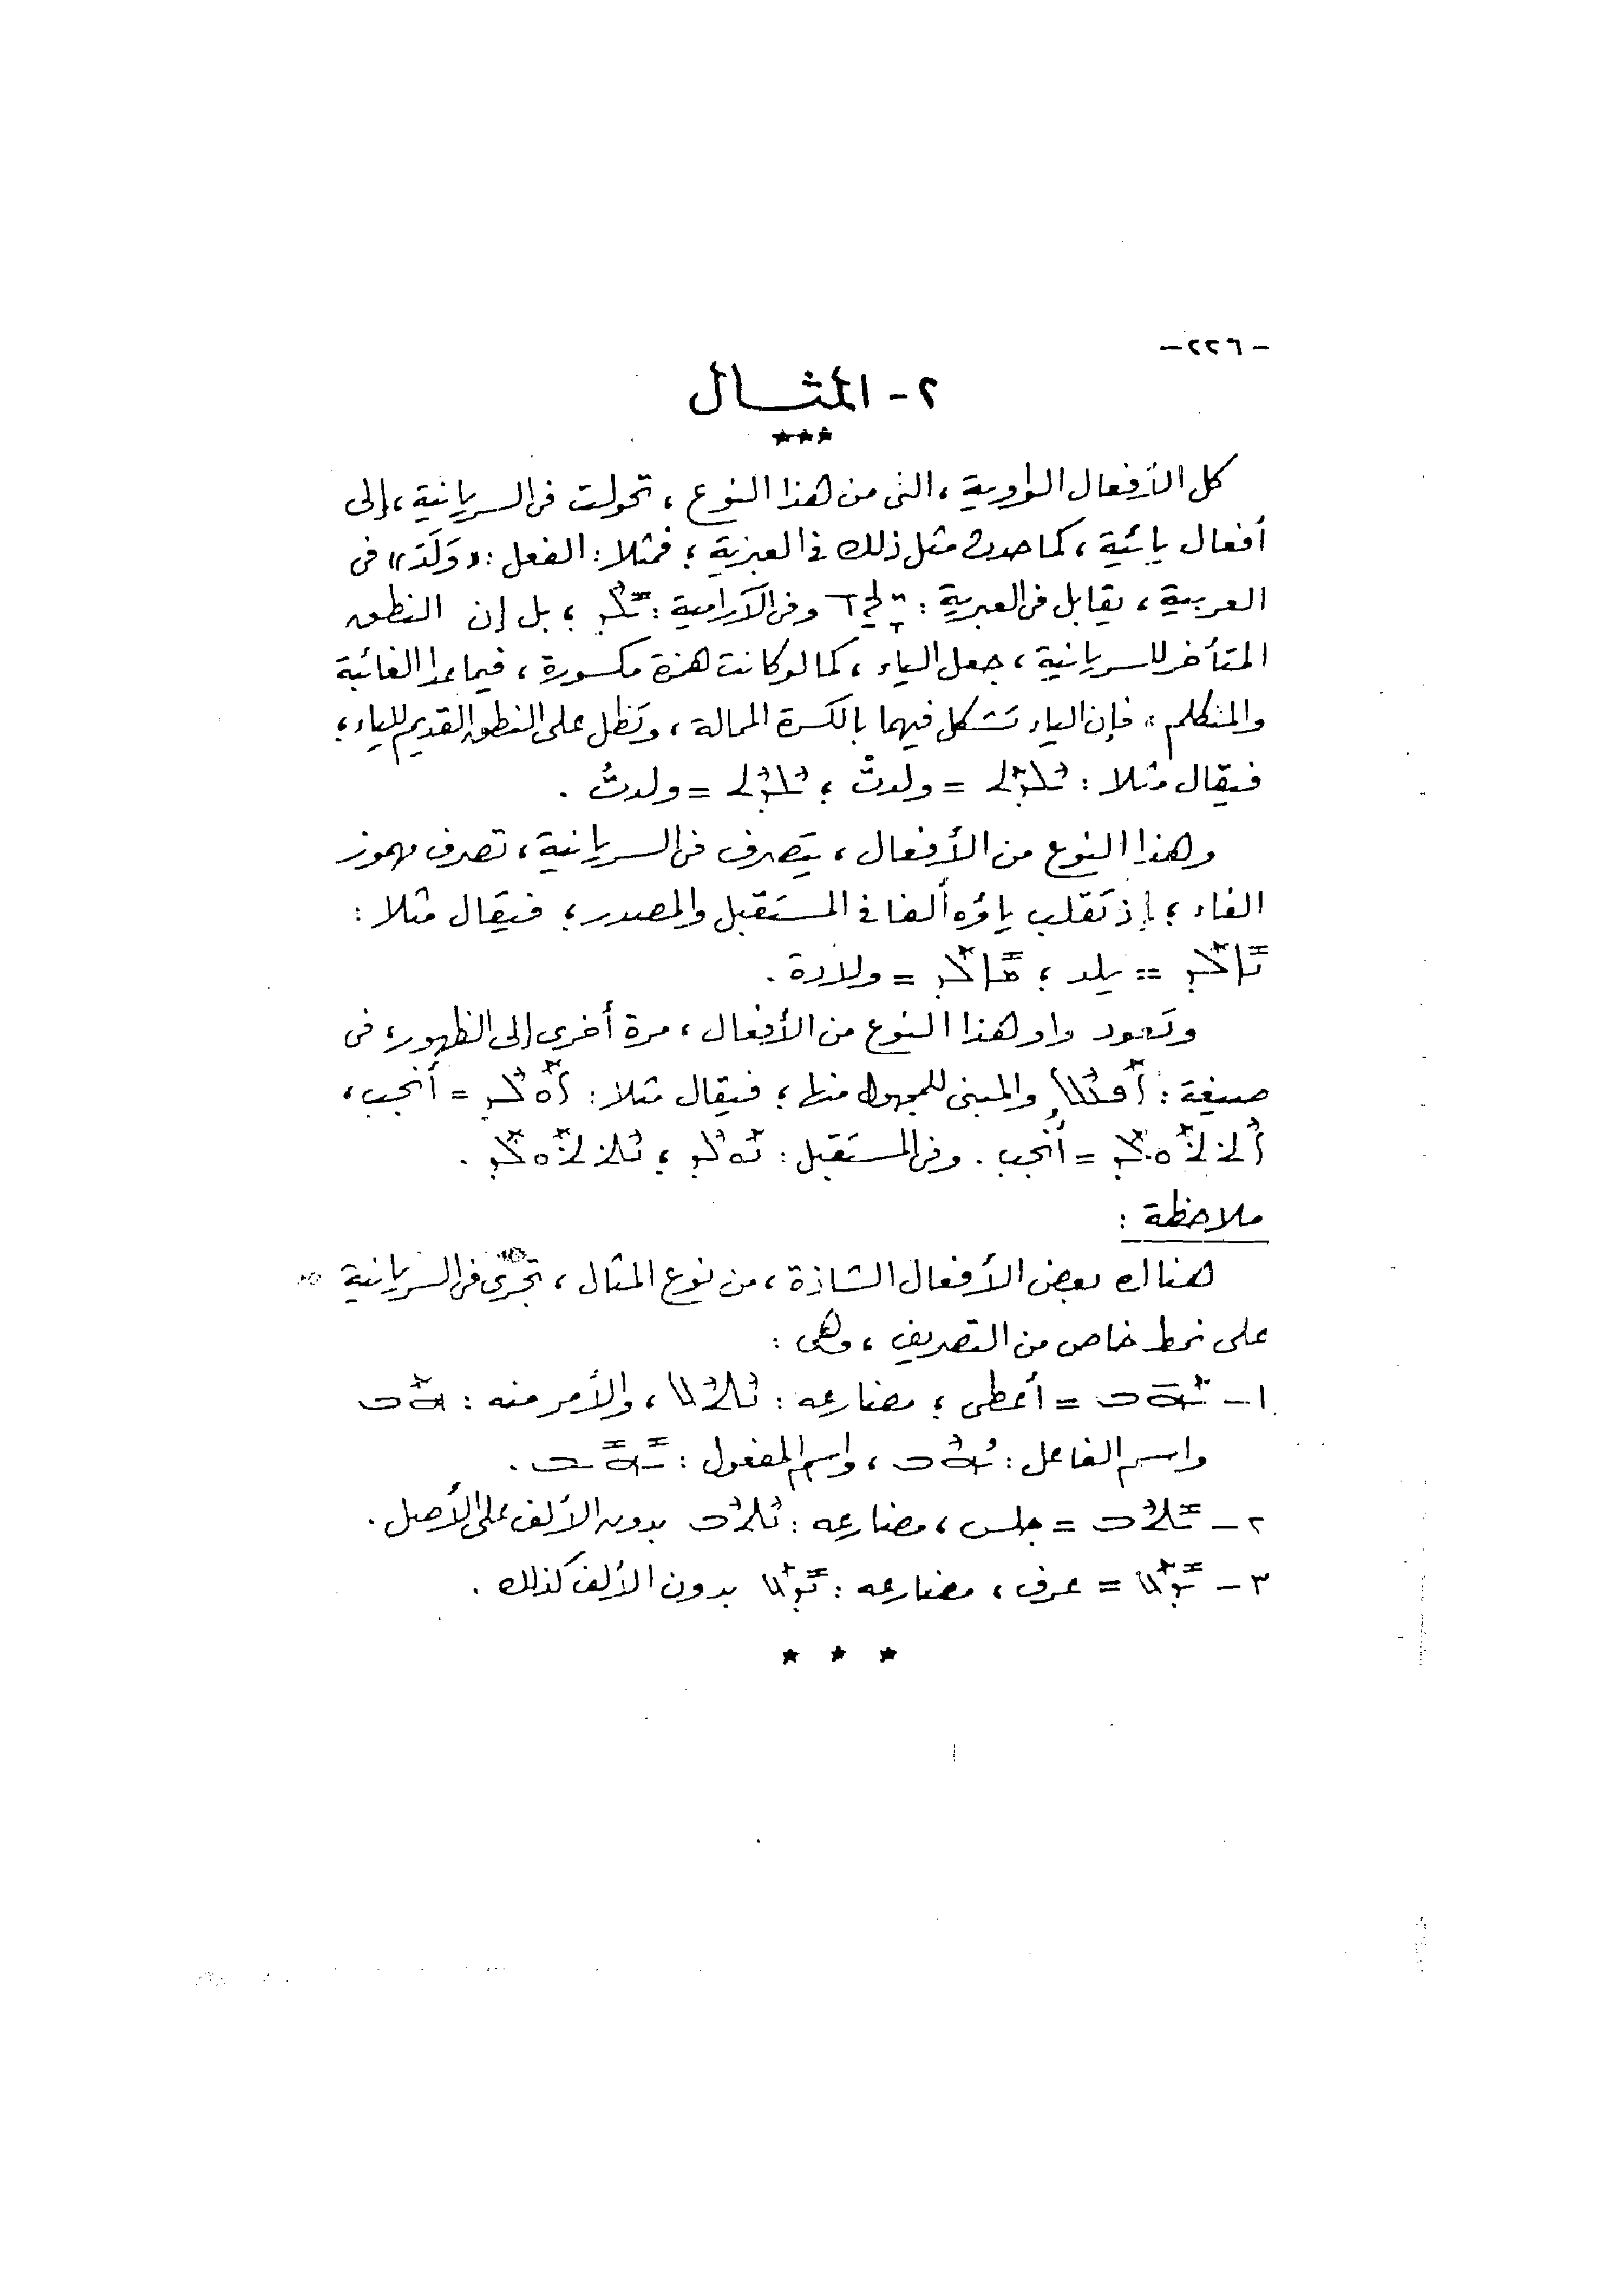 -٢٢٦-
٢- المثـــال
***
كل الأفعال الواوية، التى من هذا النوع، تحولت فى السريانية، إلى
أفعال يائية، كما حدث مثل ذلك فى العبرية؛ فمثلا: الفعل: «وَلَدَ» فى
العربية، يقابل فى العبرية: יָלַד وفى الآرامية: ܝܠܕ؛ بل إن النطق
المتأخر للسريانية، جعل الياء، كما لو كانت همزة مكسورة، فيما عدا الغائبة
والمتكلم، فإن الياء تشكل فيهما بالكسرة الممالة، وتظل على النطق القديم للياء؛
فيقال مثلا: ܝܠܕܬ = ولدتْ؛ ܝܠܕܬ = ولدتُ.
وهذا النوع من الأفعال، يتصرف فى السريانية، تصرف مهموز
الفاء؛ إذ تقلب ياؤه ألفا فى المستقبل والمصدر؛ فيقال مثلا:
ܢܐܠܕ = يلد؛ ܡܐܠܕ = ولادة.
وتعود واو هذا النوع من الأفعال، مرة أخرى إلى الظهور، فى
صيغة: ܐܦܥܠ والمبنى للمجهول منها؛ فيقال مثلا: ܐܘܠܕ = أنجب،
ܐܬܬܘܠܕ = أُنجب. وفى المستقبل: ܢܘܠܕ؛ ܢܬܬܘܠܕ.
ملاحظة:
هناك بعض الأفعال الشاذة، من نوع المثال، تجرى فى السريانية
على نمط خاص من التصريف، وهى:
١- ܝܗܒ = أعطى؛ مضارعه: ܢܬܠ، والأمر منه: ܗܒ
واسم الفاعل: ܝܗܒ، واسم المفعول: ܝܗܝܒ.
٢- ܝܬܒ = جلس، مضارعه: ܢܬܒ بدون الألف على الأصل.
٣- ܝܕܥ = عرف، مضارعه: ܢܕܥ بدون الألف كذلك.
* * *